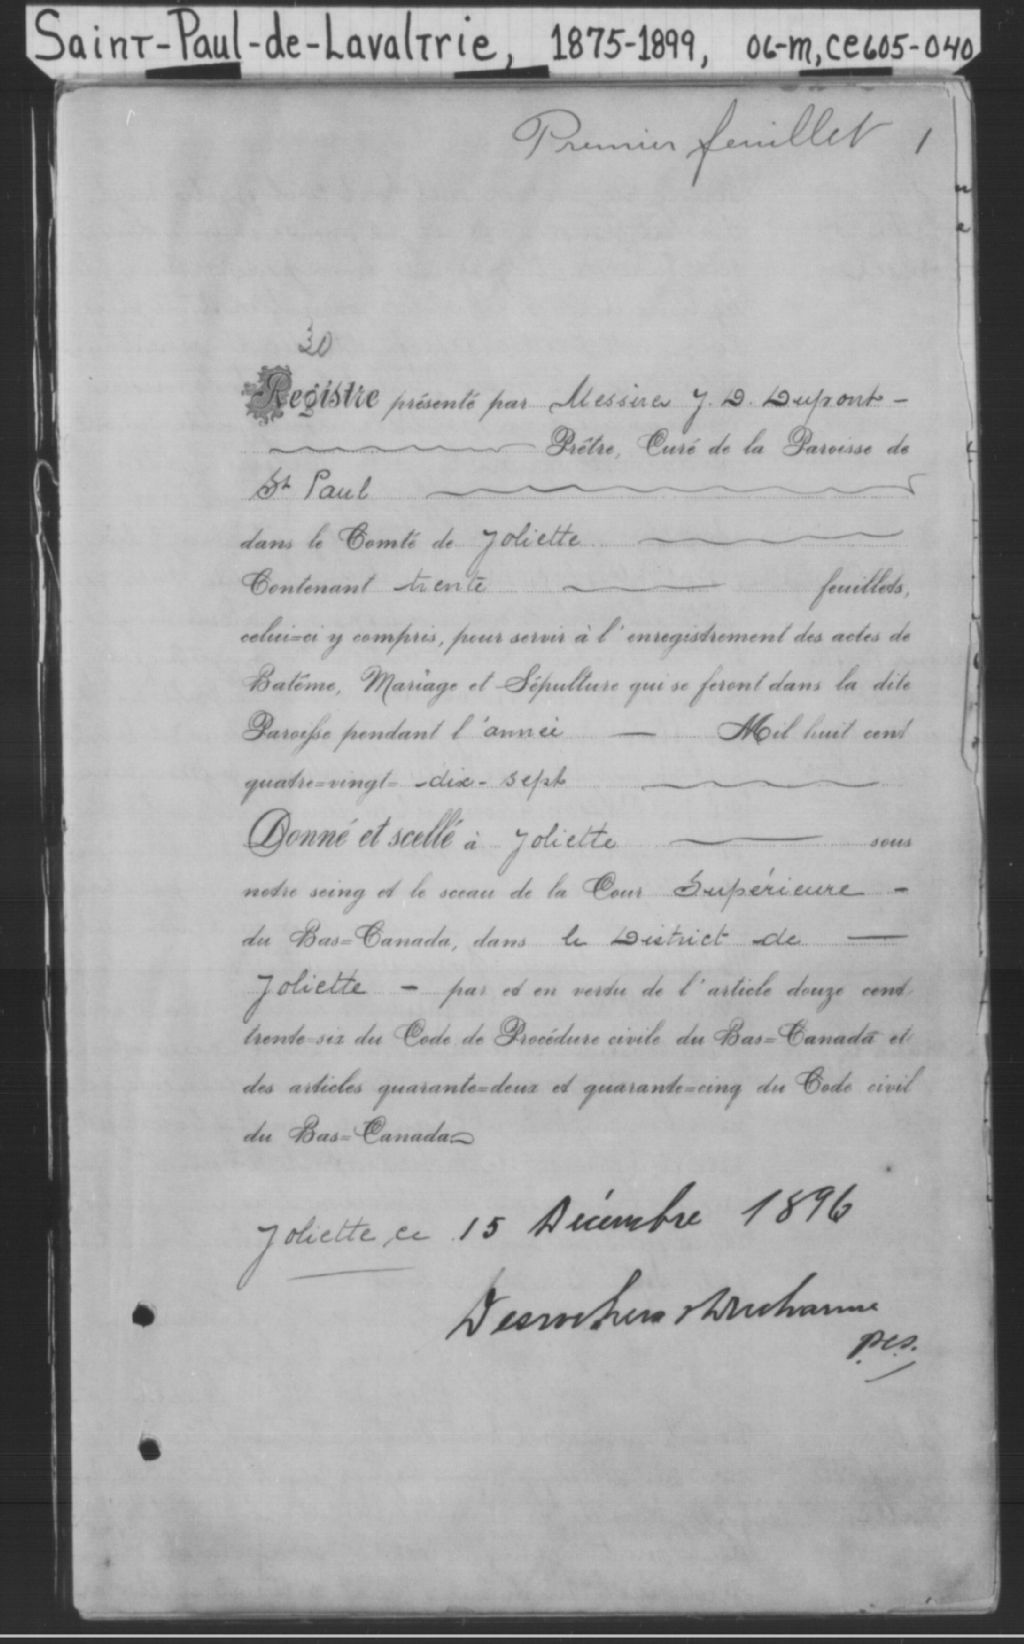 Saint-Paul-de-Lavaltrie, 1875-1899, 06-M, CE605-040
Premier feuillet 1
30
Registre présenté par Messire J. D. Dupont -
Prêtre, Curé de la Paroisse de
St Paul
dans le Comté de Joliette
Contenant trente feuillets,
celui=ci y compris, pour servir à l'enregistrement des actes de
Batême, Mariage et Sépulture qui se feront dans la dite
Paroisse pendant l'année — Mil huit cent
quatre=vingt=-dix-sept
Donné et scellé à Joliette — sous
notre seing et le sceau de la Cour Supérieure -
du Bas=Canada, dans le District de —
Joliette - par et en vertu de l'article douze cent
trente-six du Code de Procédure civile du Bas=Canada et
des articles quarante=deux et quarante=cinq du Code civil
du Bas=Canada
Joliette, ce 15 Décembre 1896
Desrochers & Ducharme
p.c.s.